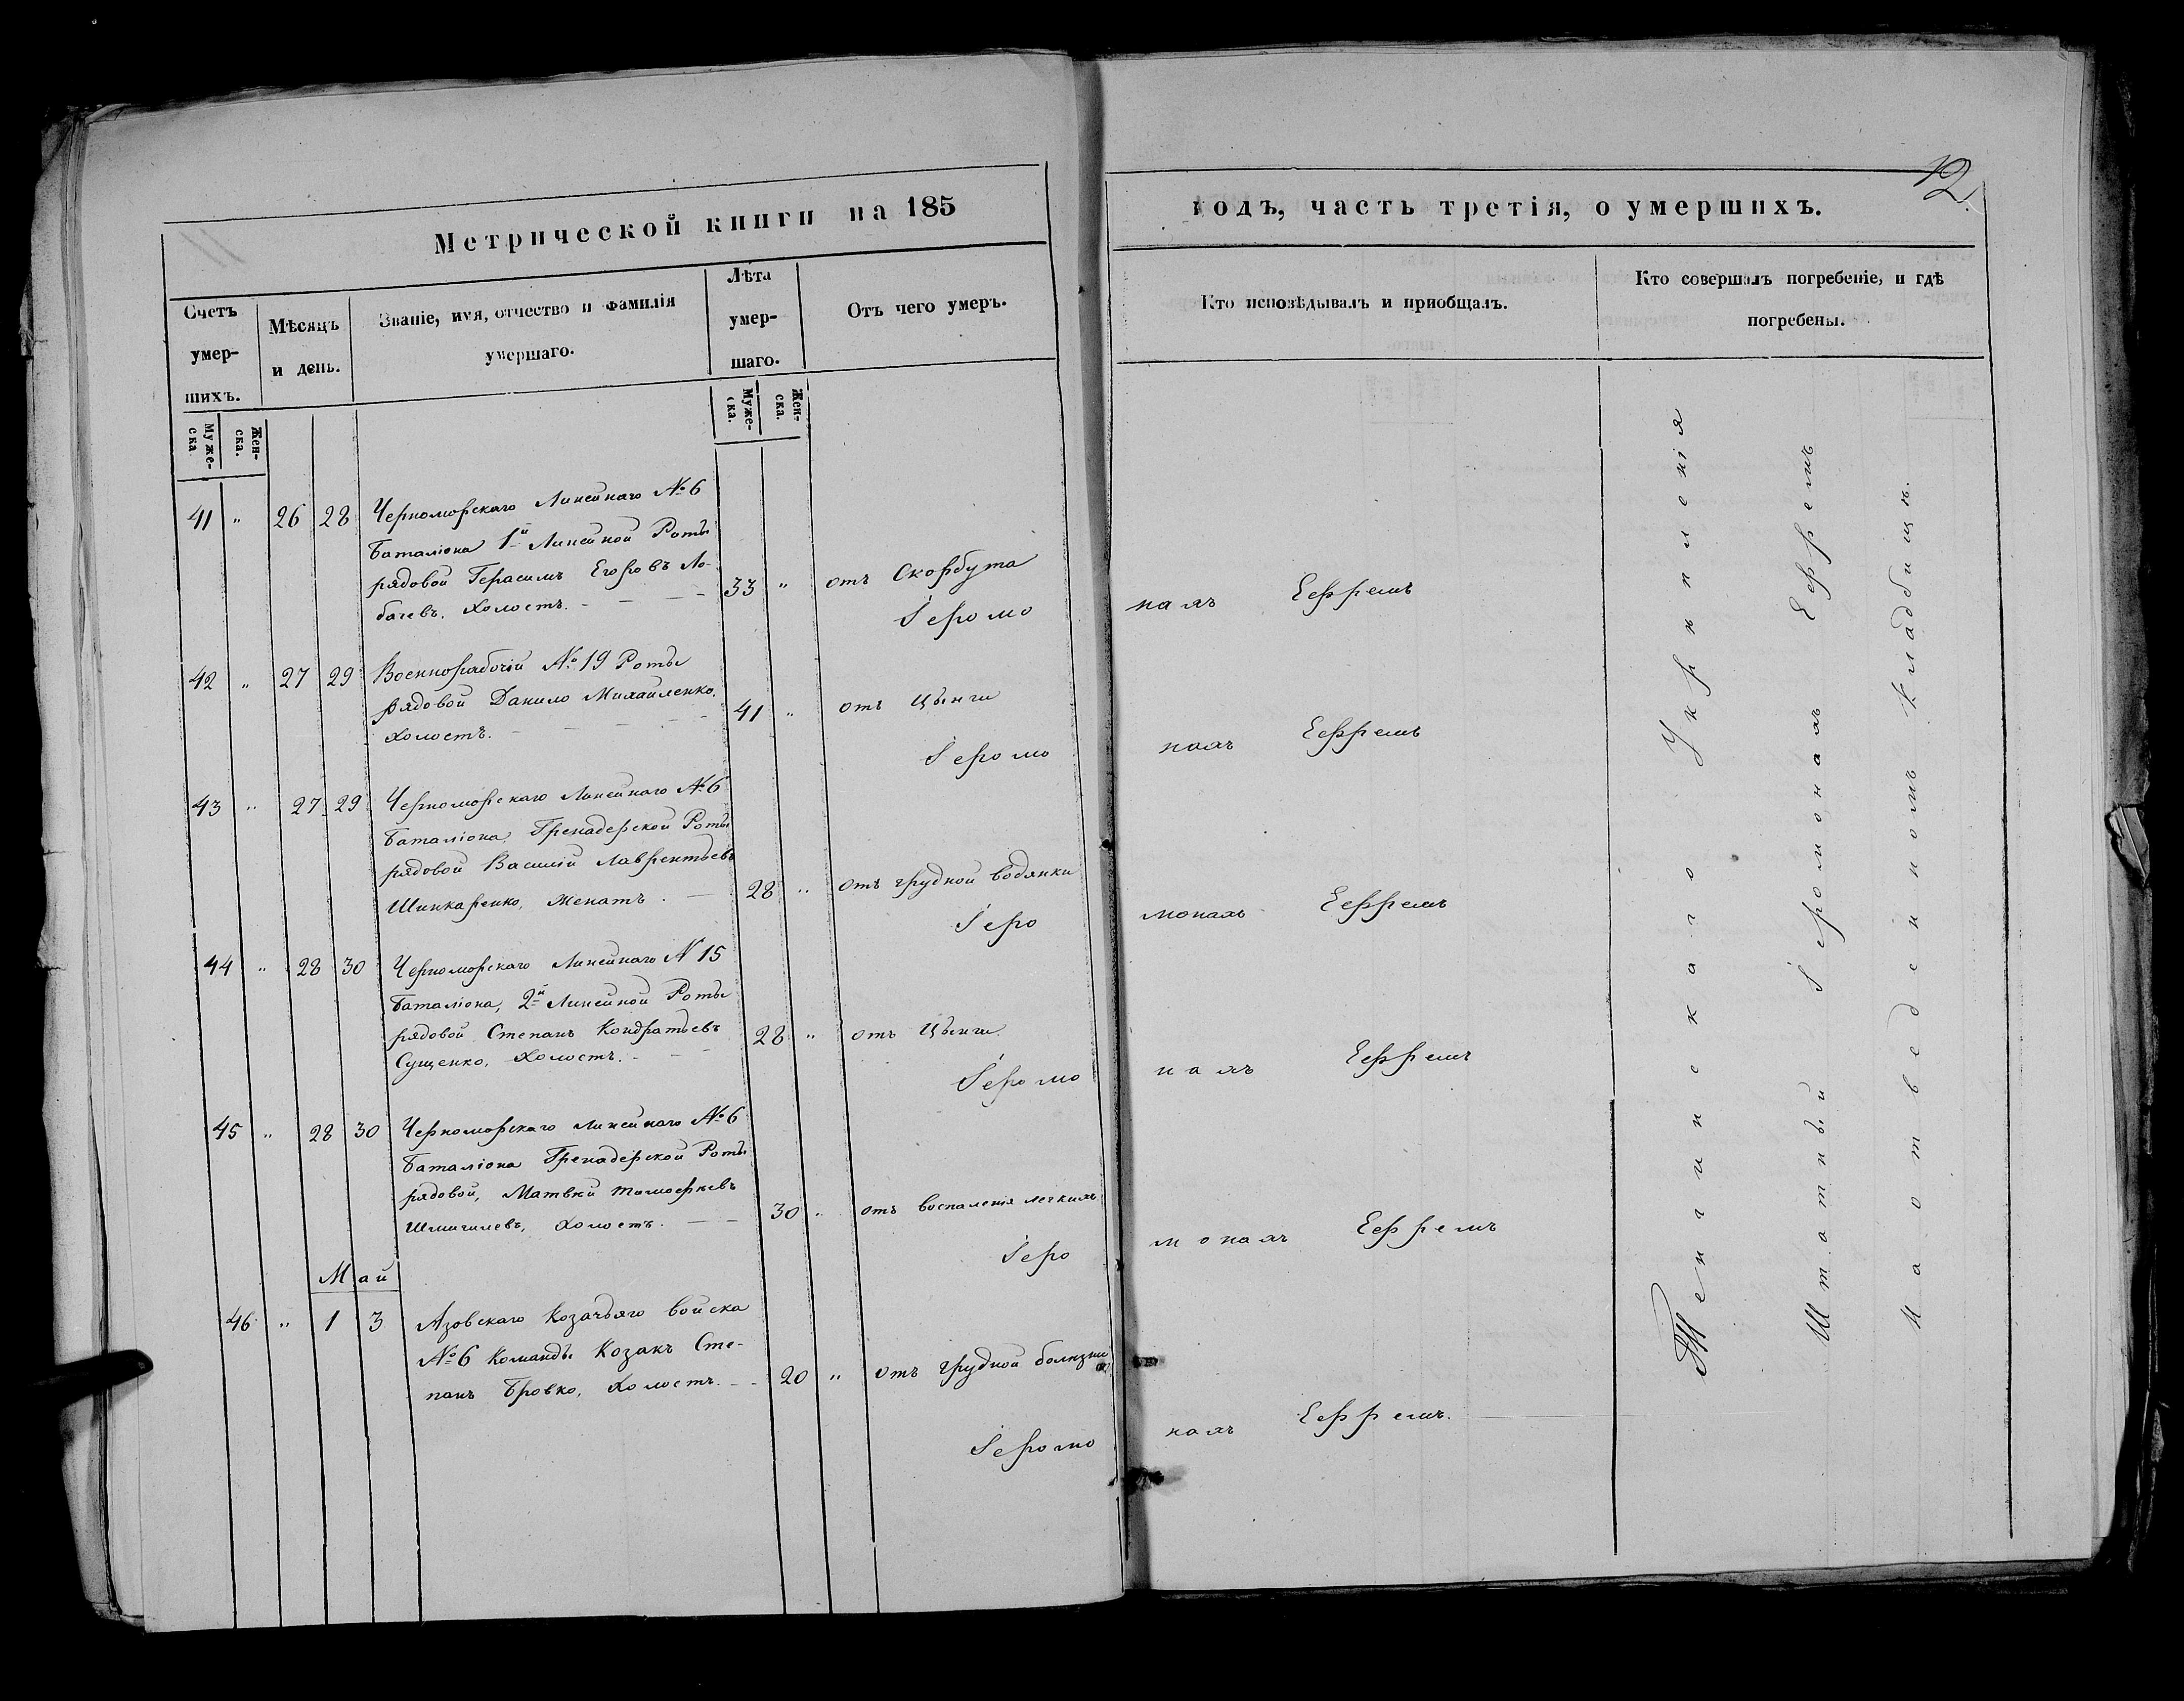 Метрической книги на 185
Счетъ умер-шихъ.
Мѣсяцъ и день.
Званіе, имя, отчество и фамилія умершаго.
Лѣта умер-шаго.
Отъ чего умеръ.
Муже-ска
Жен-ска.
Муже-ска.
Жен-ска.
41 " 26 28 Черноморскаго Линейнаго №6
Баталіона 1й Линейной Роты
рядовой Герасимъ Егоровъ Ло-
бачевъ. Холостъ. - - - -
33 " отъ Скорбута
Іеромо
42 " 27 29 Военнорабочій № 19 Роты
рядовой Данило Михайленко.
Холостъ. - - - -
41 " отъ Цынги
Іеромо
43 " 27 29 Черноморскаго Линейнаго №6
Баталіона, Гренадерской Роты
рядовой Василій Лаврентьевъ
Шинкаренко, Женатъ. -
28 " отъ грудной водянки
Іеро
44 " 28 30 Черноморскаго Линейнаго N 15
Баталіона, 2й Линейной Роты
рядовой Степанъ Кондратьевъ
Сущенко, Холостъ. - - -
28 " отъ Цынги
Іеромо
45 " 28 30 Черноморскаго Линейнаго №6
Баталіона Гренадерской Роты
рядовой, Матвѣй Тимофѣевъ
Холостъ. - -
30 " отъ воспаленія легкихъ
Іеро
Май
46 " 1 3 Азовскаго Козачьяго войска
№6 Команды Козакъ Сте-
панъ Бровко, Холостъ. - -
20 " отъ грудной болѣзни
Іеромо
12
годъ, часть третія, о умершихъ.
Кто исповѣдывалъ и пріобщалъ.
Кто совершалъ погребеніе, и гдѣ
погребены.
нахъ Ефремъ
нахъ Ефремъ
монахъ Ефремъ
нахъ Ефремъ
монахъ Ефремъ
нахъ Ефремъ.
Тенгинскаго Укрѣпленія
Штатный Іеромонахъ Ефремъ
На отведенномъ Кладбищѣ.